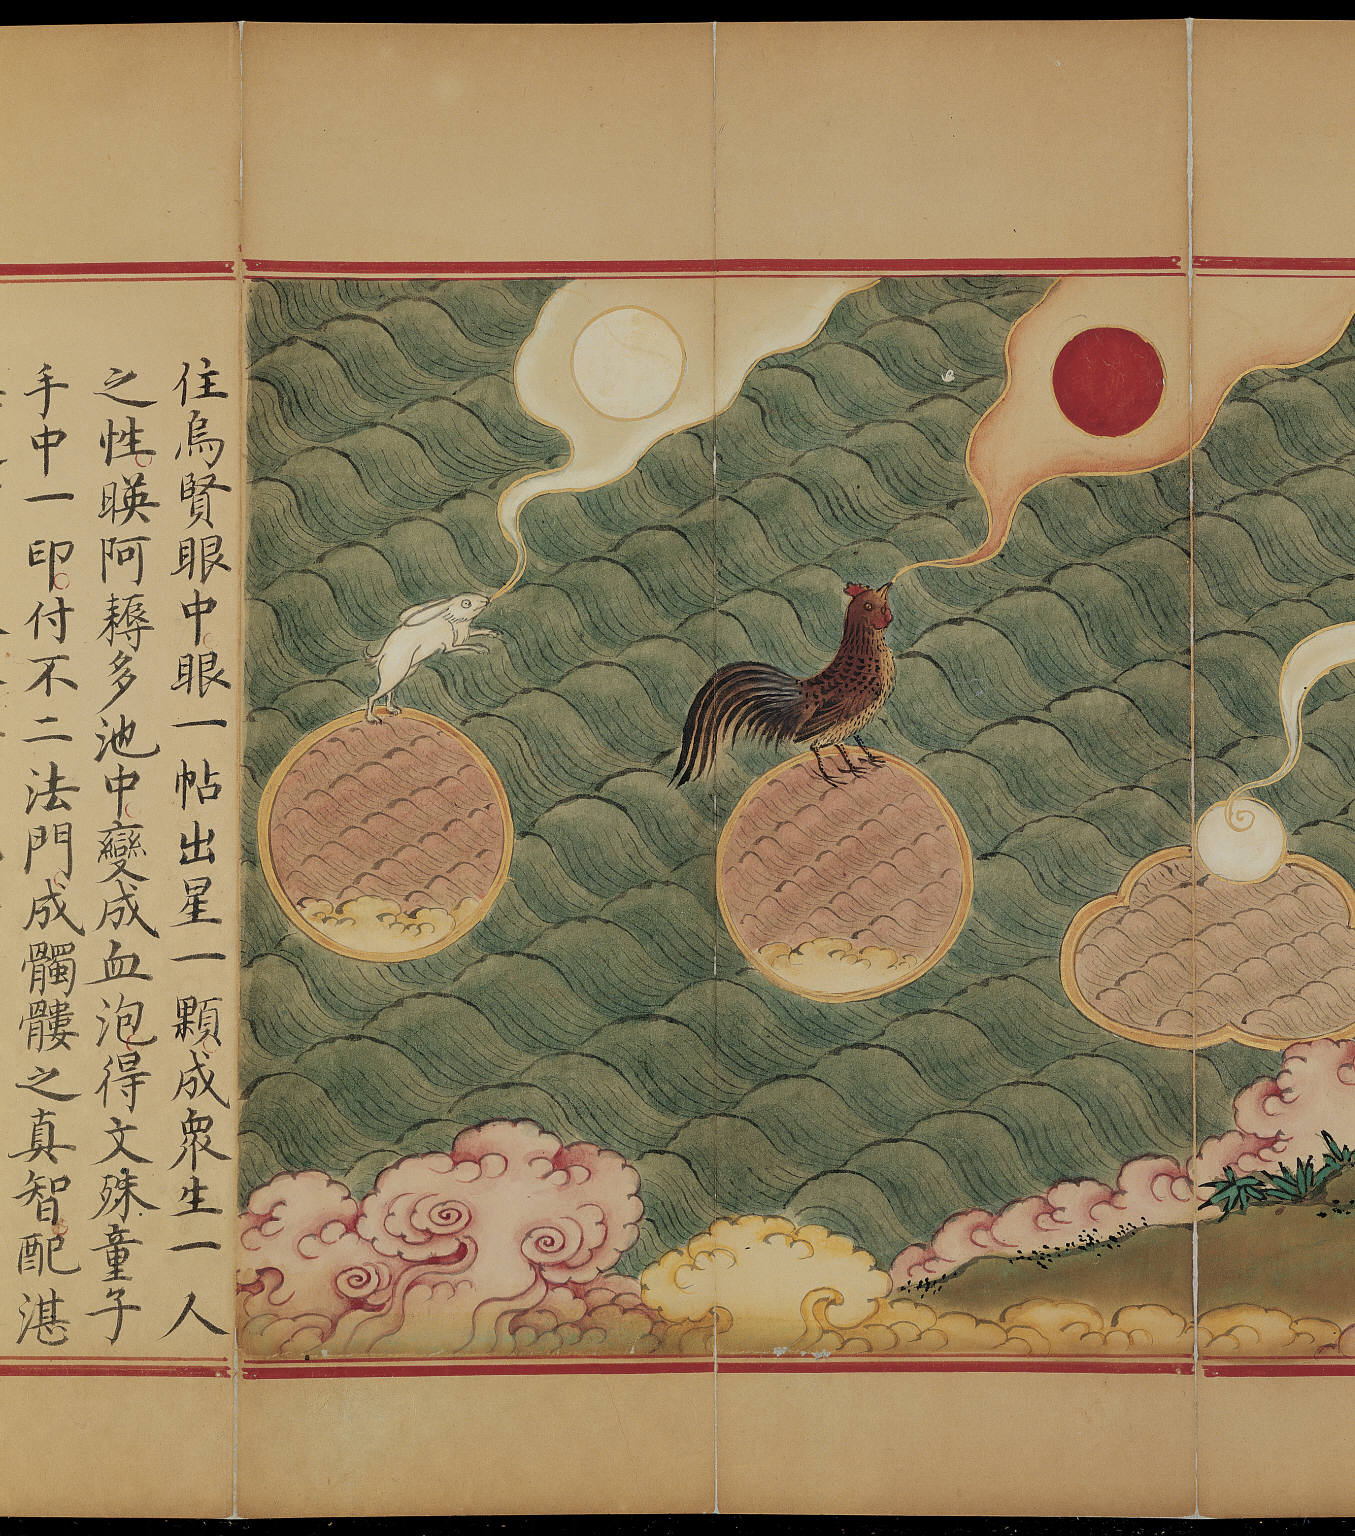 住烏賢眼中眼一帖出星一顆成眾生一人
之性暎阿耨多池中變成血泡得文殊童子
手中一印付不二法門成髑髏之真智配湛